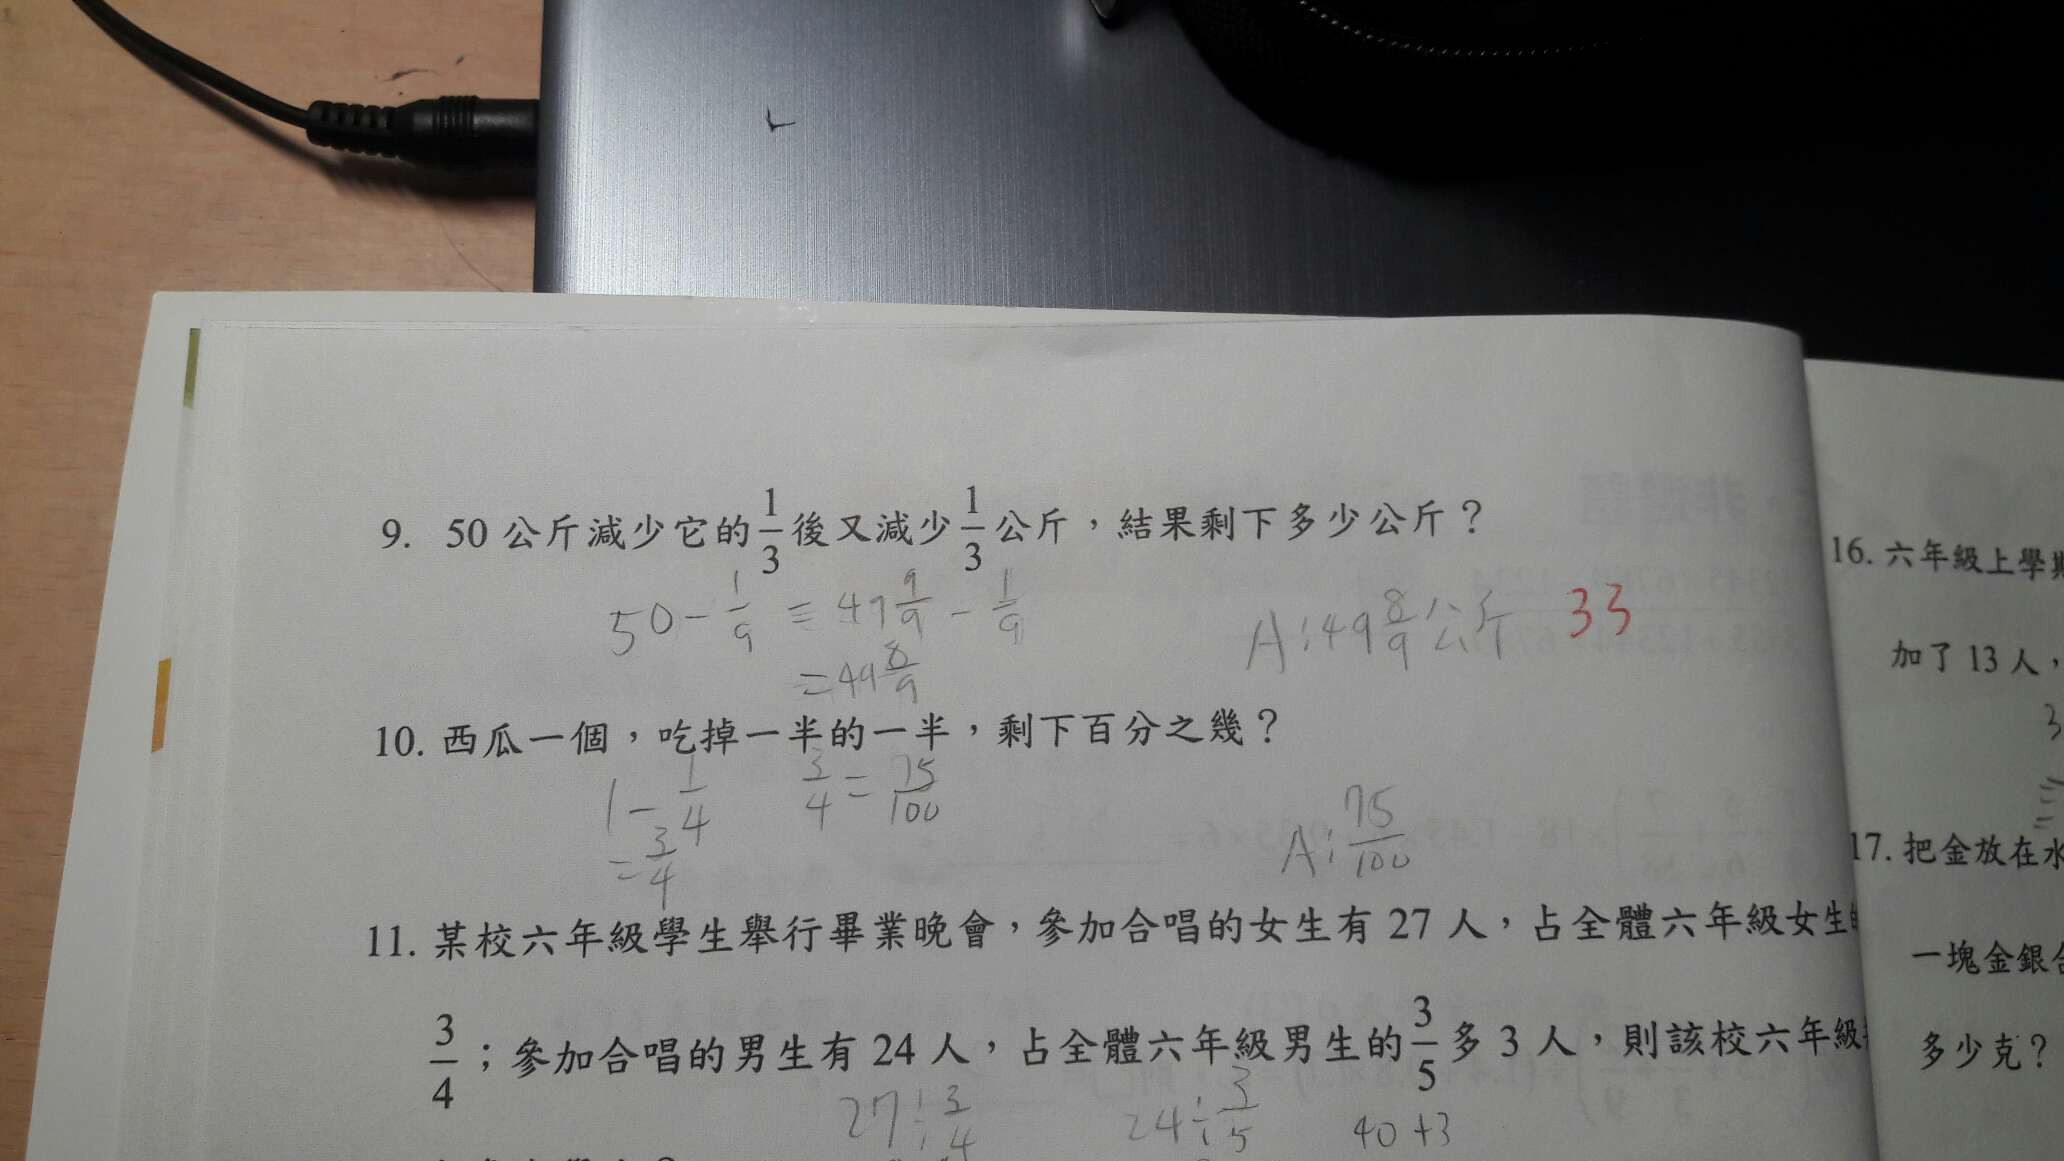 9. 50公斤減少它的1/3後又減少1/3公斤，結果剩下多少公斤？
50 - 1/9 = 49 9/9 - 1/9
= 49 8/9
A：49 8/9 公斤 33
10. 西瓜一個，吃掉一半的一半，剩下百分之幾？
1 - 1/4 3/4 = 75/100
= 3/4
A：75/100
11. 某校六年級學生舉行畢業晚會，參加合唱的女生有27人，占全體六年級女生的
3/4；參加合唱的男生有24人，占全體六年級男生的3/5多3人，則該校六年級
27÷3/4 24÷3/5 40+3
16. 六年級上學期
加了13人，
3
17. 把金放在水
一塊金銀合
多少克？